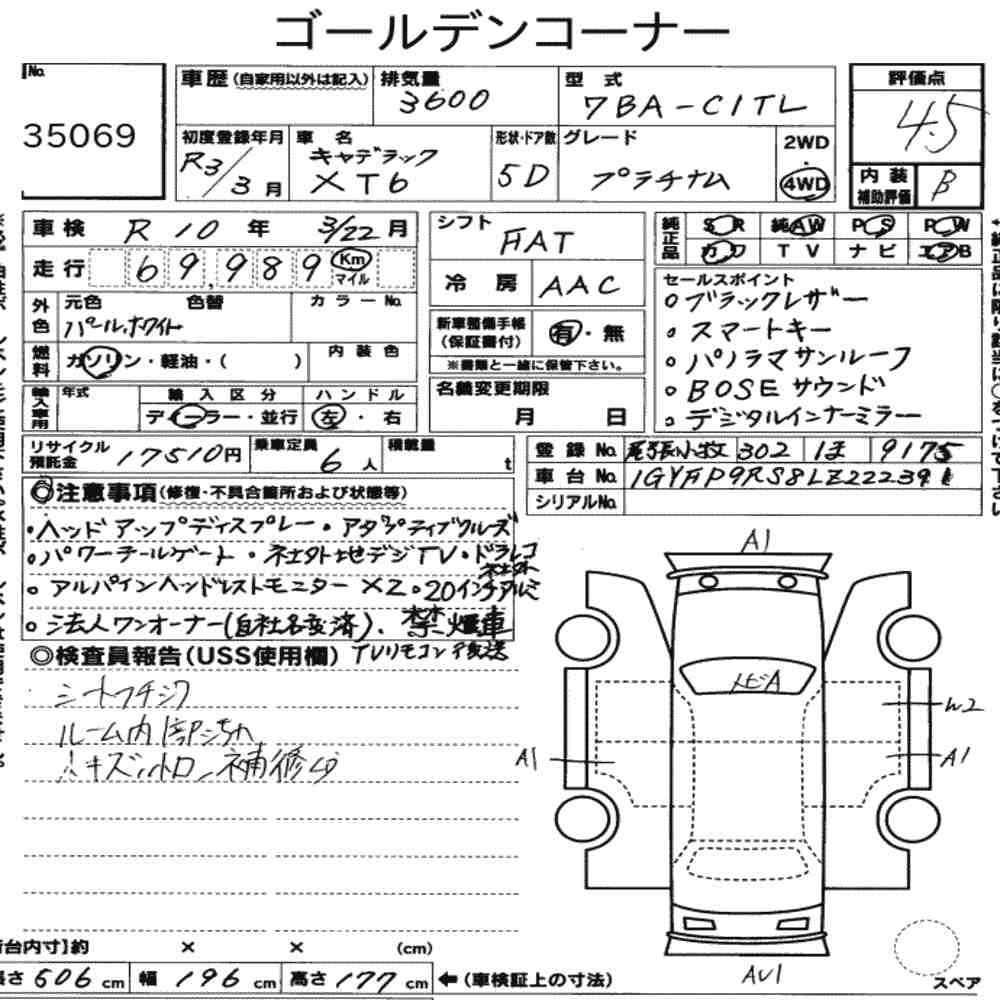 ゴールデンコーナー
No.
35069
車歴(自家用以外は記入)
排気量
3600
型式
7BA-C1TL
評価点
4.5
初度登録年月
R3/3月
車名
キャデラック
XT6
形状・ドア数
5D
グレード
プラチナム
2WD
4WD
内装
補助評価
B
車検 R10年 3/22月
走行 69,989 Km
マイル
外色
元色
色替
カラーNo.
パールホワイト
燃料
ガソリン・軽油・( )
内装色
輸入車用
年式
輸入区分
ハンドル
ディーラー・並行
左・右
シフト
FAT
冷房
AAC
新車整備手帳
(保証書付)
有・無
※書類と一緒に保管下さい。
名義変更期限
月 日
純正品
SR 純AW PS PW
カワ TV ナビ エアB
セールスポイント
○ブラックレザー
○スマートキー
○パノラマサンルーフ
○BOSEサウンド
○デジタルインナーミラー
リサイクル
預託金
17510円
乗車定員
6人
積載量
t
登録No. 尾張小牧 302 ほ 9175
車台No. 1GYFP9RS8LZ222391
シリアルNo.
◎注意事項(修復・不具合箇所および状態等)
・ヘッドアップディスプレー・アダプティブクルーズ
○パワーテールゲート・社外地デジTV・ドラレコ
社外
○アルパインヘッドレストモニターX2○20インチアルミ
○法人ワンオーナー(自社名変済)、禁煙車
◎検査員報告(USS使用欄) TVリモコン後送
ルーム内
A1
W2
A1
A1
AU1
スペア
荷台内寸】約 × × (cm)
長さ506cm 幅196cm 高さ177cm ←(車検証上の寸法)